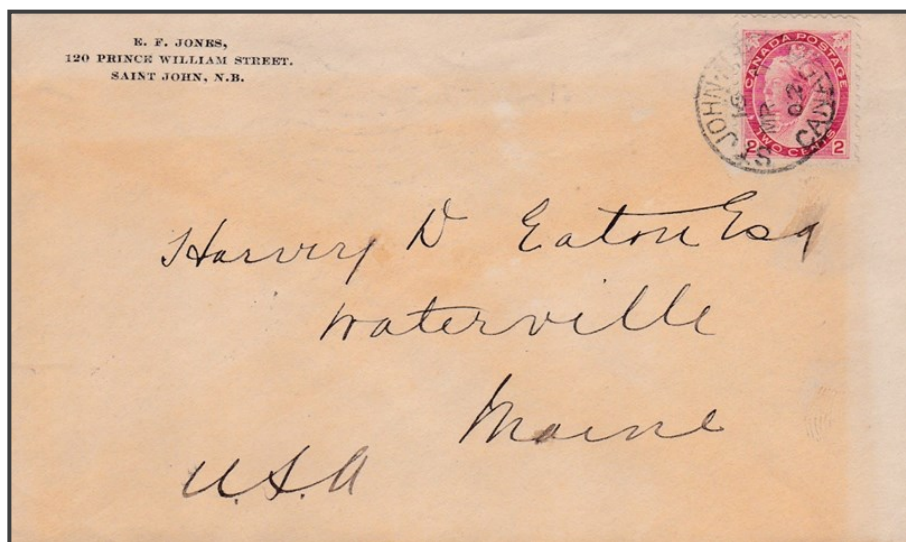 E. F. JONES,
120 PRINCE WILLIAM STREET.
SAINT JOHN, N.B.
CANADA POSTAGE
2 TWO CENTS 2
ST JOHN
MR
02
CANADA
Harvey D Eaton Esq
Waterville
Maine
U.S.A